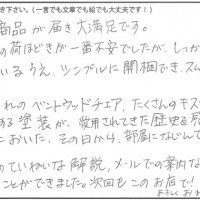 き下さい。(一言でも文章でも絵でも大丈夫です!)
商品が届き大満足です。
の荷ほどきが一番不安でしたが、しっか
いるうえ、シンプルに開梱でき、スム
れのベントウッドチェア、たくさんのキズ
ある塗装が、使用されてきた歴史を感
においた、その日から、部屋になじんで
のていねいな解説、メールでの案内な
ことができました。次回もこのお店で!
よろしくおね